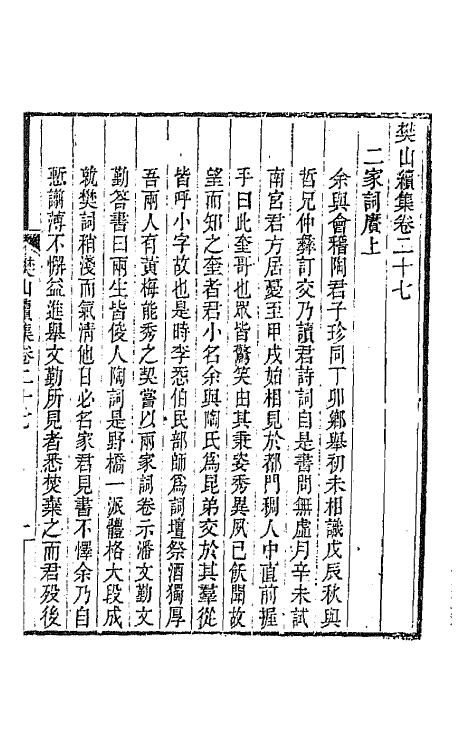 樊山續集卷二十七
二家詞賡上
余與會稽陶君子珍同丁卯鄉舉初未相識戊辰秋與
哲兄仲彝訂交乃讀君詩詞自是書問無虛月辛未試
南宮君方居憂至甲戌始相見於都門稠人中直前握
手曰此奎哥也眾皆驚笑由其秉姿秀異夙已飫聞故
望而知之奎者君小名余與陶氏為昆弟交於其羣從
皆呼小字故也是時李悉伯民部師為詞壇祭酒獨厚
吾兩人有黃梅能秀之契嘗以兩家詞卷示潘文勤文
勤答書曰兩生皆俊人陶詞是野橋一派體格大段成
就樊詞稍淺而氣清他日必名家君見書不懌余乃自
慙譾薄不懈益進舉文勤所見者悉焚棄之而君歿後
樊山續集卷二十七
一